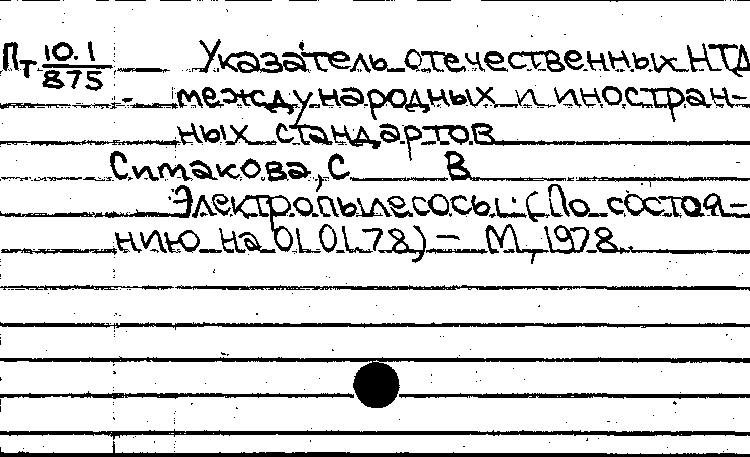 Пт 10.1/875 Указатель отечественных НТД
международных и иностран-
ных стандартов
Ситакова, С В
Электропылесосы: (По состоя-
нию на 01.01.78) - М, 1978.